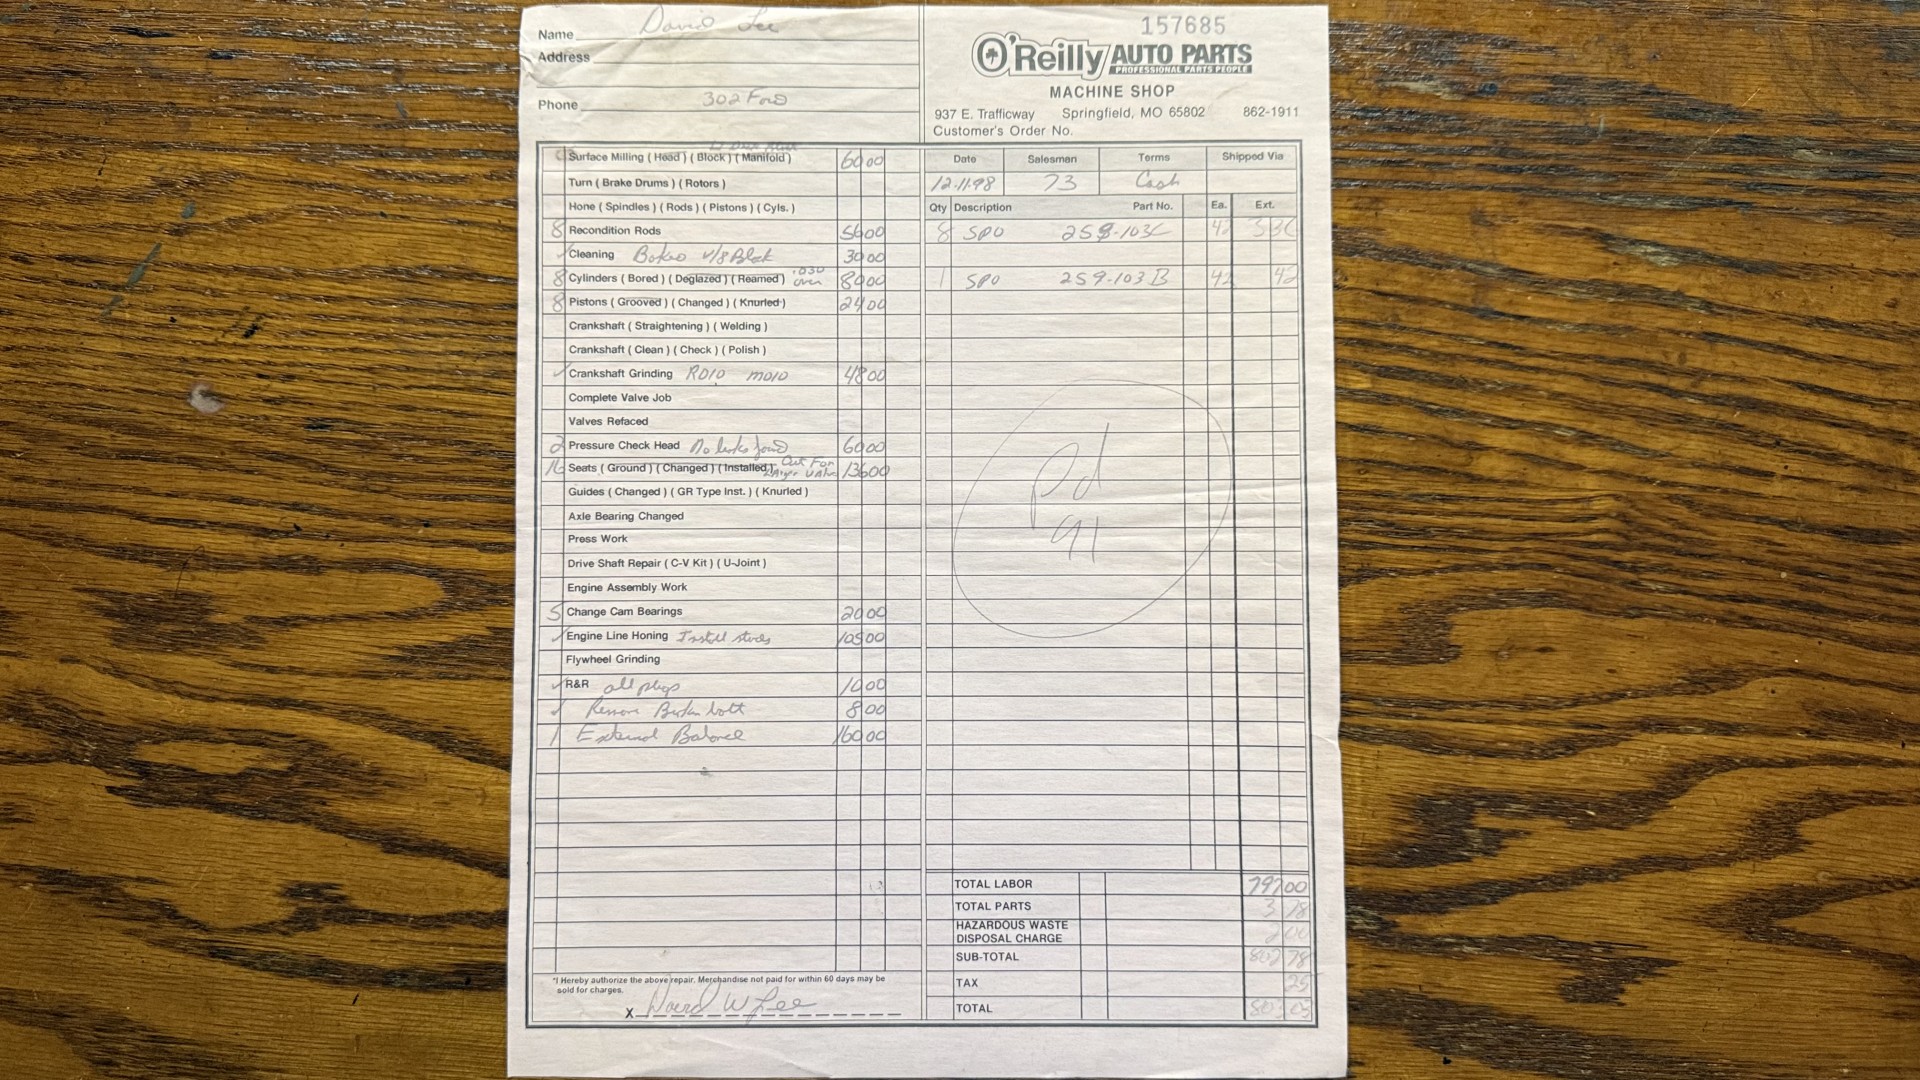 157685
Name David Lee
O'Reilly AUTO PARTS
PROFESSIONAL PARTS PEOPLE
Address
MACHINE SHOP
Phone 302 Ford
937 E. Trafficway Springfield, MO 65802 862-1911
Customer's Order No.
Surface Milling ( Head ) ( Block ) ( Manifold ) 60 00
Turn ( Brake Drums ) ( Rotors )
Hone ( Spindles ) ( Rods ) ( Pistons ) ( Cyls. )
8 Recondition Rods 56 00
Cleaning Baked V/8 Block 30 00
8 Cylinders ( Bored ) ( Deglazed ) ( Reamed ) .030 over 80 00
8 Pistons ( Grooved ) ( Changed ) ( Knurled ) 24 00
Crankshaft ( Straightening ) ( Welding )
Crankshaft ( Clean ) ( Check ) ( Polish )
Crankshaft Grinding RD10 MD10 48 00
Complete Valve Job
Valves Refaced
2 Pressure Check Head No leaks found 60 00
16 Seats ( Ground ) ( Changed ) ( Installed ) Cut For Larger Valve 136 00
Guides ( Changed ) ( GR Type Inst. ) ( Knurled )
Axle Bearing Changed
Press Work
Drive Shaft Repair ( C-V Kit ) ( U-Joint )
Engine Assembly Work
5 Change Cam Bearings 20 00
Engine Line Honing Install studs 105 00
Flywheel Grinding
R&R all plugs 10 00
Remove Broken bolt 8 00
1 External Balance 160 00
*I Hereby authorize the above repair. Merchandise not paid for within 60 days may be
sold for charges.
X David W Lee
Date Salesman Terms Shipped Via
12-11-98 73 Cash
Qty Description Part No. Ea. Ext.
8 SPO 259-103C 42 3 36
1 SPO 259-103B 42 42
Pd
91
TOTAL LABOR 797 00
TOTAL PARTS 3 78
HAZARDOUS WASTE
DISPOSAL CHARGE 2 00
SUB-TOTAL 802 78
TAX 25
TOTAL 803 03